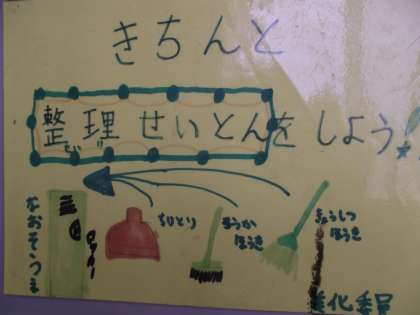 きちんと
整理せいとんをしよう!
なおそつま
ちりとり
ろうか
ほうき
きょうしつ
ほうき
美化委員